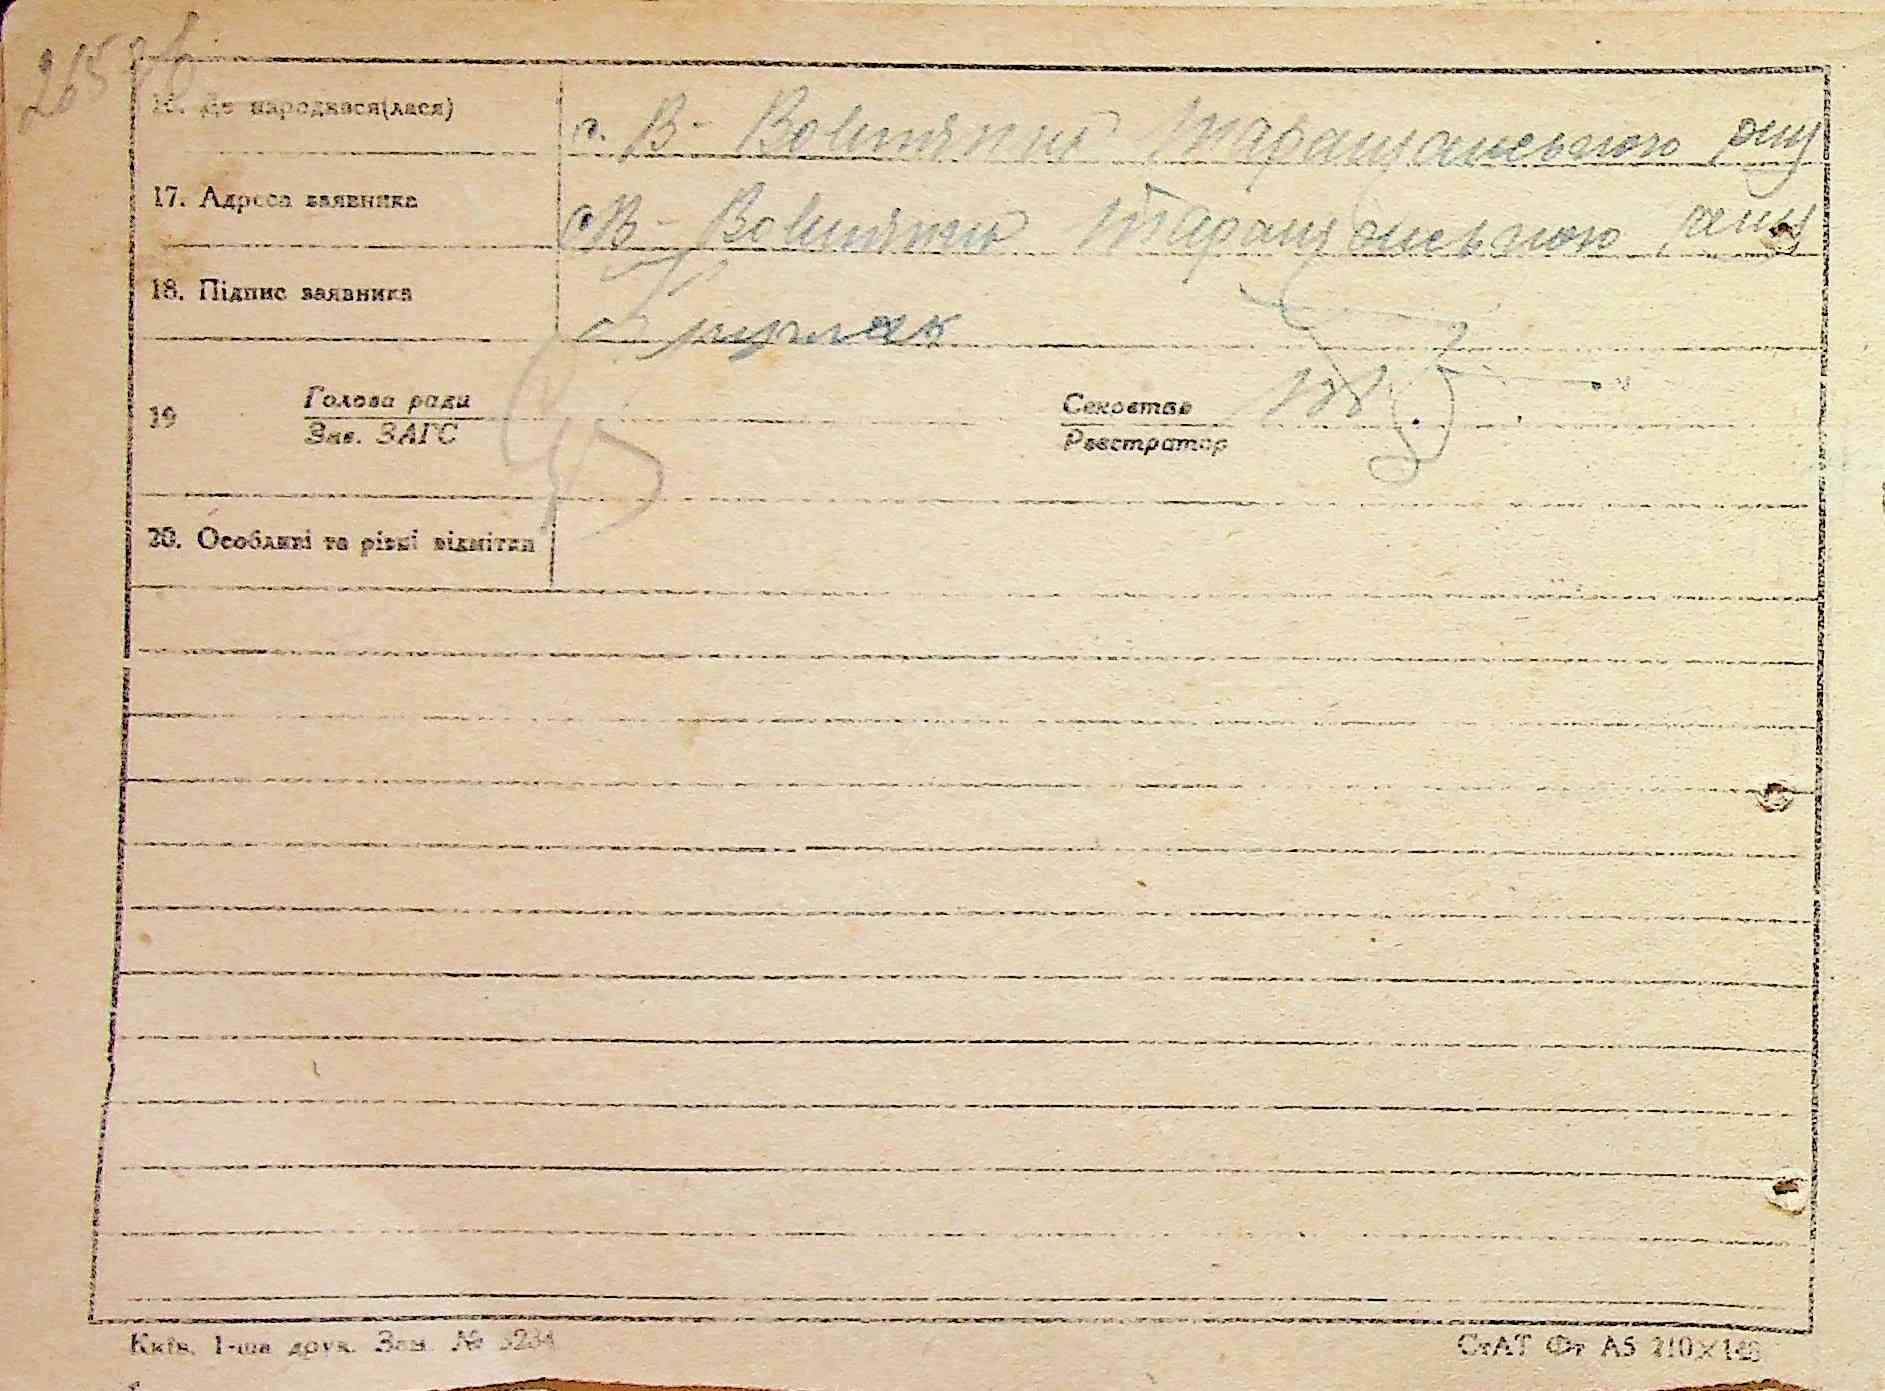 265 зв
16. Де народився(лася) с. В- Вовнянка Таращанського р-ну
17. Адреса заявника с В- Вовнянка Таращанського р-ну
18. Підпис заявника
19 Голова ради Секретар
Зав. ЗАГС Реєстратор
20. Особливі та різні відмітки
Київ. 1-ша друк. Зам. № 3234 СтАТ Фт А5 210×148